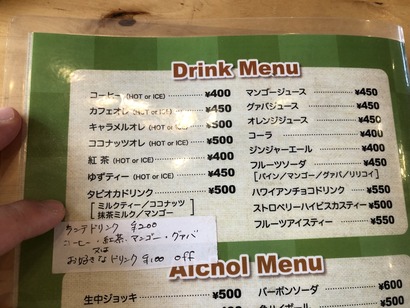 Drink Menu
コーヒー (HOT or ICE) ¥400
カフェオレ (HOT or ICE) ¥450
キャラメルオレ (HOT or ICE) ¥500
ココナッツオレ (HOT or ICE) ¥500
紅茶 (HOT or ICE) ¥400
ゆずティー (HOT or ICE) ¥450
タピオカドリンク ¥500
[ミルクティー／ココナッツ
抹茶ミルク／マンゴー]
マンゴージュース ¥450
グァバジュース ¥450
オレンジジュース ¥450
コーラ ¥400
ジンジャーエール ¥400
フルーツソーダ ¥450
[パイン／マンゴー／グァバ／リリコイ]
ハワイアンチョコドリンク ¥550
ストロベリーハイビスカスティー ¥500
フルーツアイスティー ¥550
ランチドリンク ¥200
コーヒー・紅茶、マンゴー・グァバ
又は
お好きなドリンク ¥100 off
Alchol Menu
生中ジョッキ ¥500
バーボンソーダ ¥600